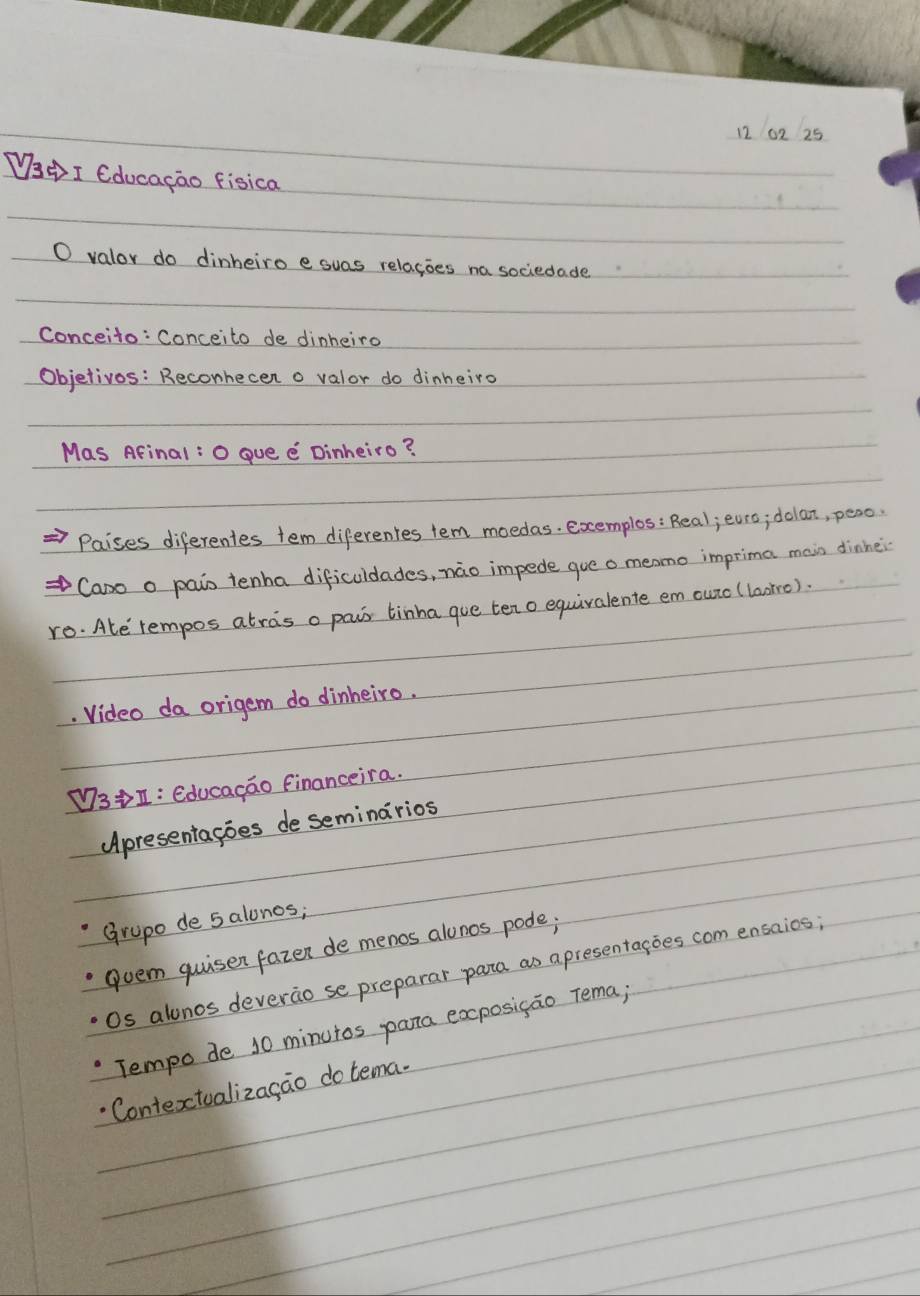 12/02/25
V3⇨I Educação Física
O valor do dinheiro e suas relações na sociedade
Conceito: Conceito de dinheiro
Objetivos: Reconhecer o valor do dinheiro
Mas Afinal: O que é Dinheiro?
⇒ Paises diferentes tem diferentes tem moedas. Excemplos: Real; euro; dolar, peso.
⇒ Caso o país tenha dificuldades, não impede que o mesmo imprima mais dinhei-
ro. Até tempos atrás o país tinha que ter o equivalente em ouro (lastro).
. Video da origem do dinheiro.
V3⇨II: Educação financeira.
Apresentações de seminários
• Grupo de 5 alunos;
• Quem quiser fazer de menos alunos pode;
• Os alunos deverão se preparar para as apresentações com ensaios;
• Tempo de 10 minutos para excposição Tema;
• Contextualização do tema.